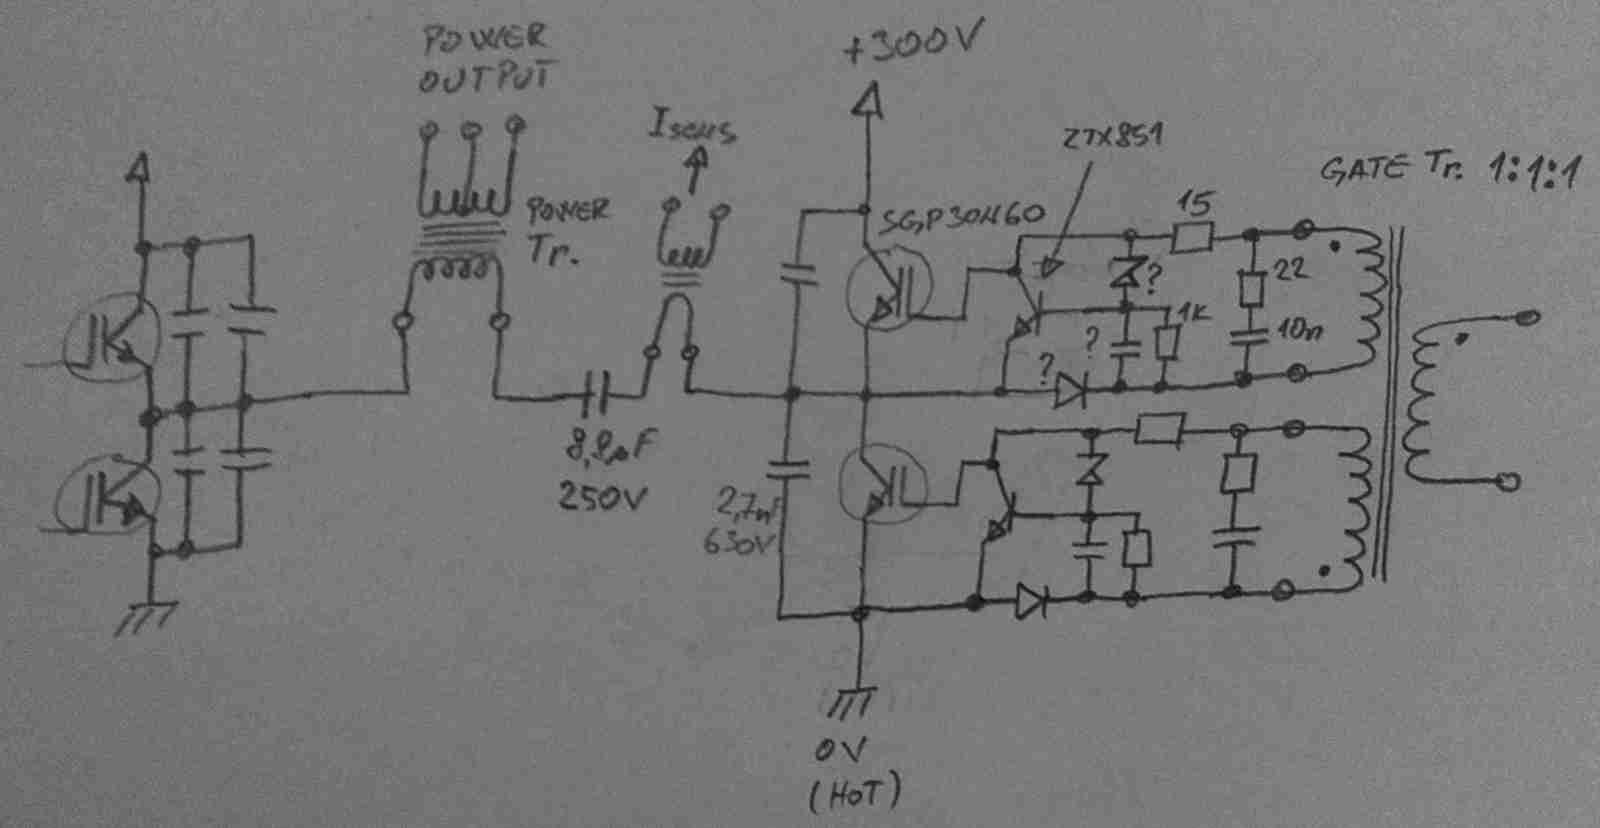 POWER
OUTPUT
+300V
Isens
ZTX851
GATE Tr. 1:1:1
POWER
Tr.
SGP30N60
15
?
22
1K
?
10n
?
250V
2,7nF
630V
0V
(HOT)